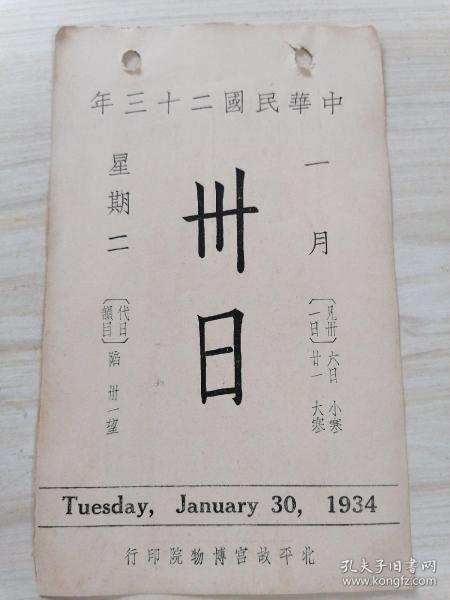 中華民國二十三年
一月
〔見卅一日〕
六日 小寒
廿一 大寒
卅日
星期二
〔代日韻目〕
陷 卅一望
Tuesday, January 30, 1934
北平故宮博物院印行
孔夫子旧书网
www.kongfz.com